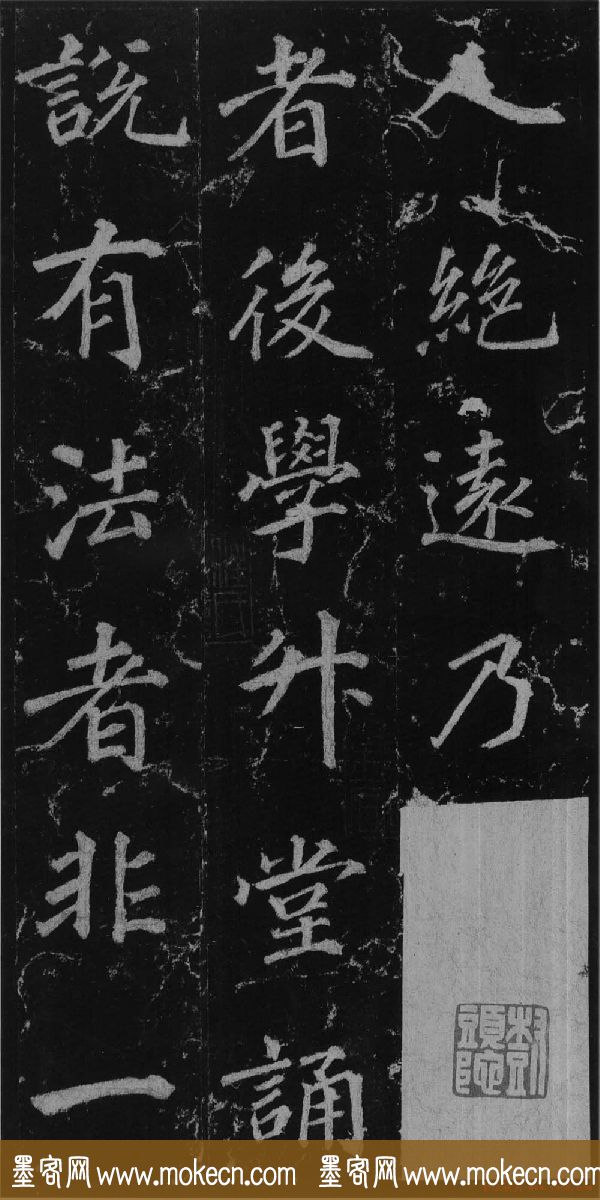 人絶遠乃
者後學升堂誦
說有法者非一
墨客网 www.mokecn.com 墨客网 www.mokecn.com